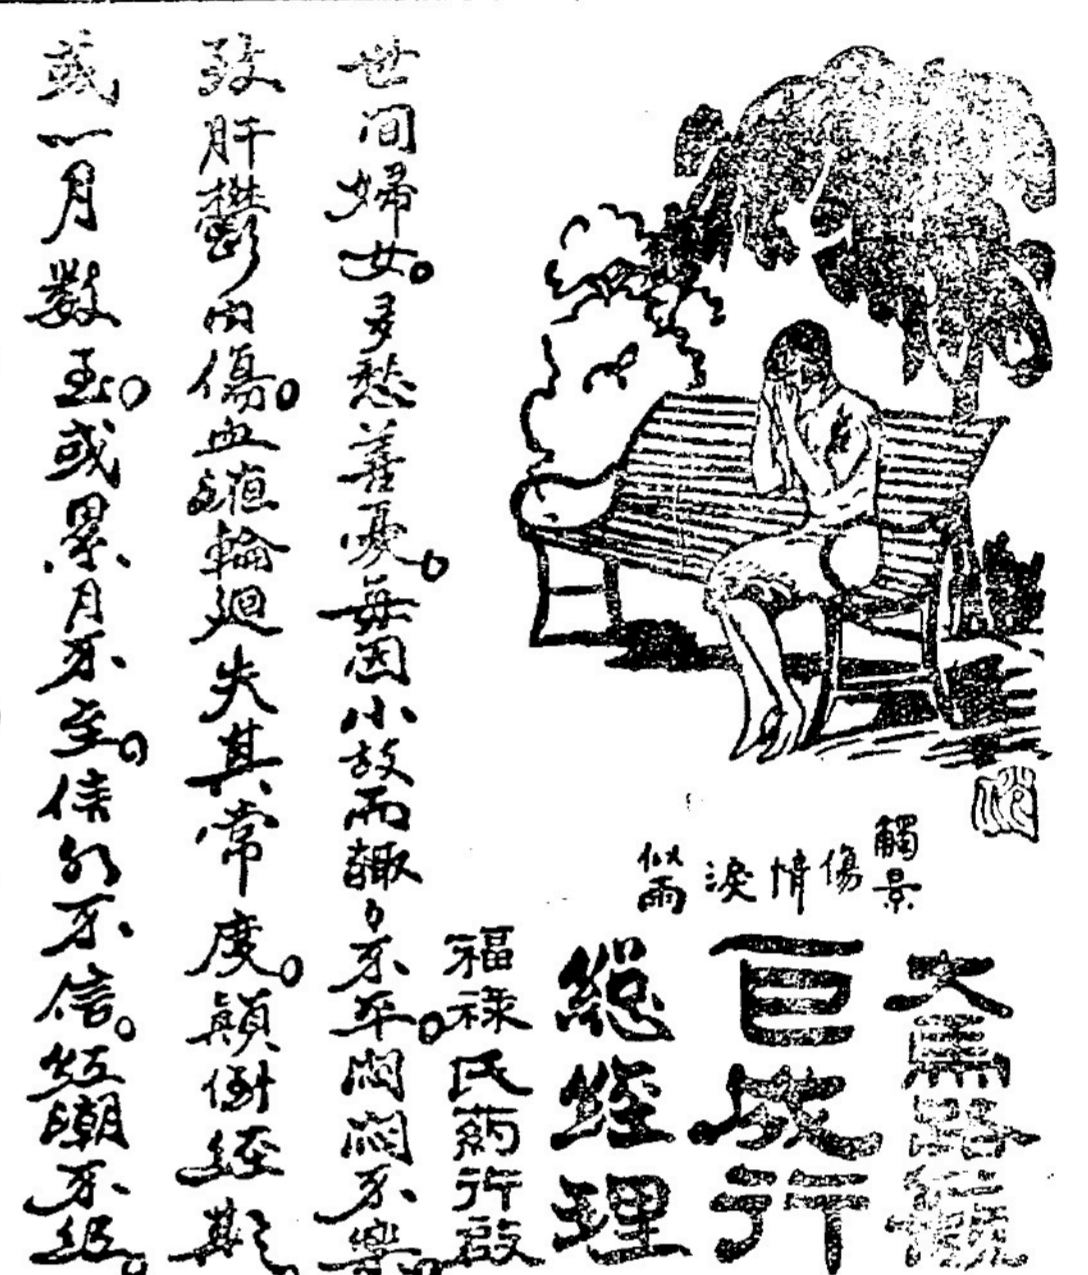 觸景
傷
情
淚
似雨
大馬路
成行
總經理
福祿氏药行啟
世間婦女。多愁善憂。每因小故而輒々不平。悶悶不樂。
致肝鬱內傷。血輪廻失其常度。顛倒經期。
或一月數至。或累月不至。信不信。經潮不經。